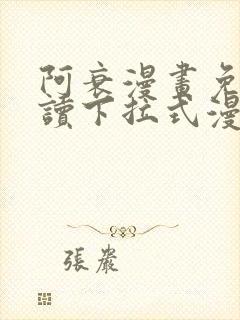 阿衰漫畫免
讀下拉式漫
張嚴